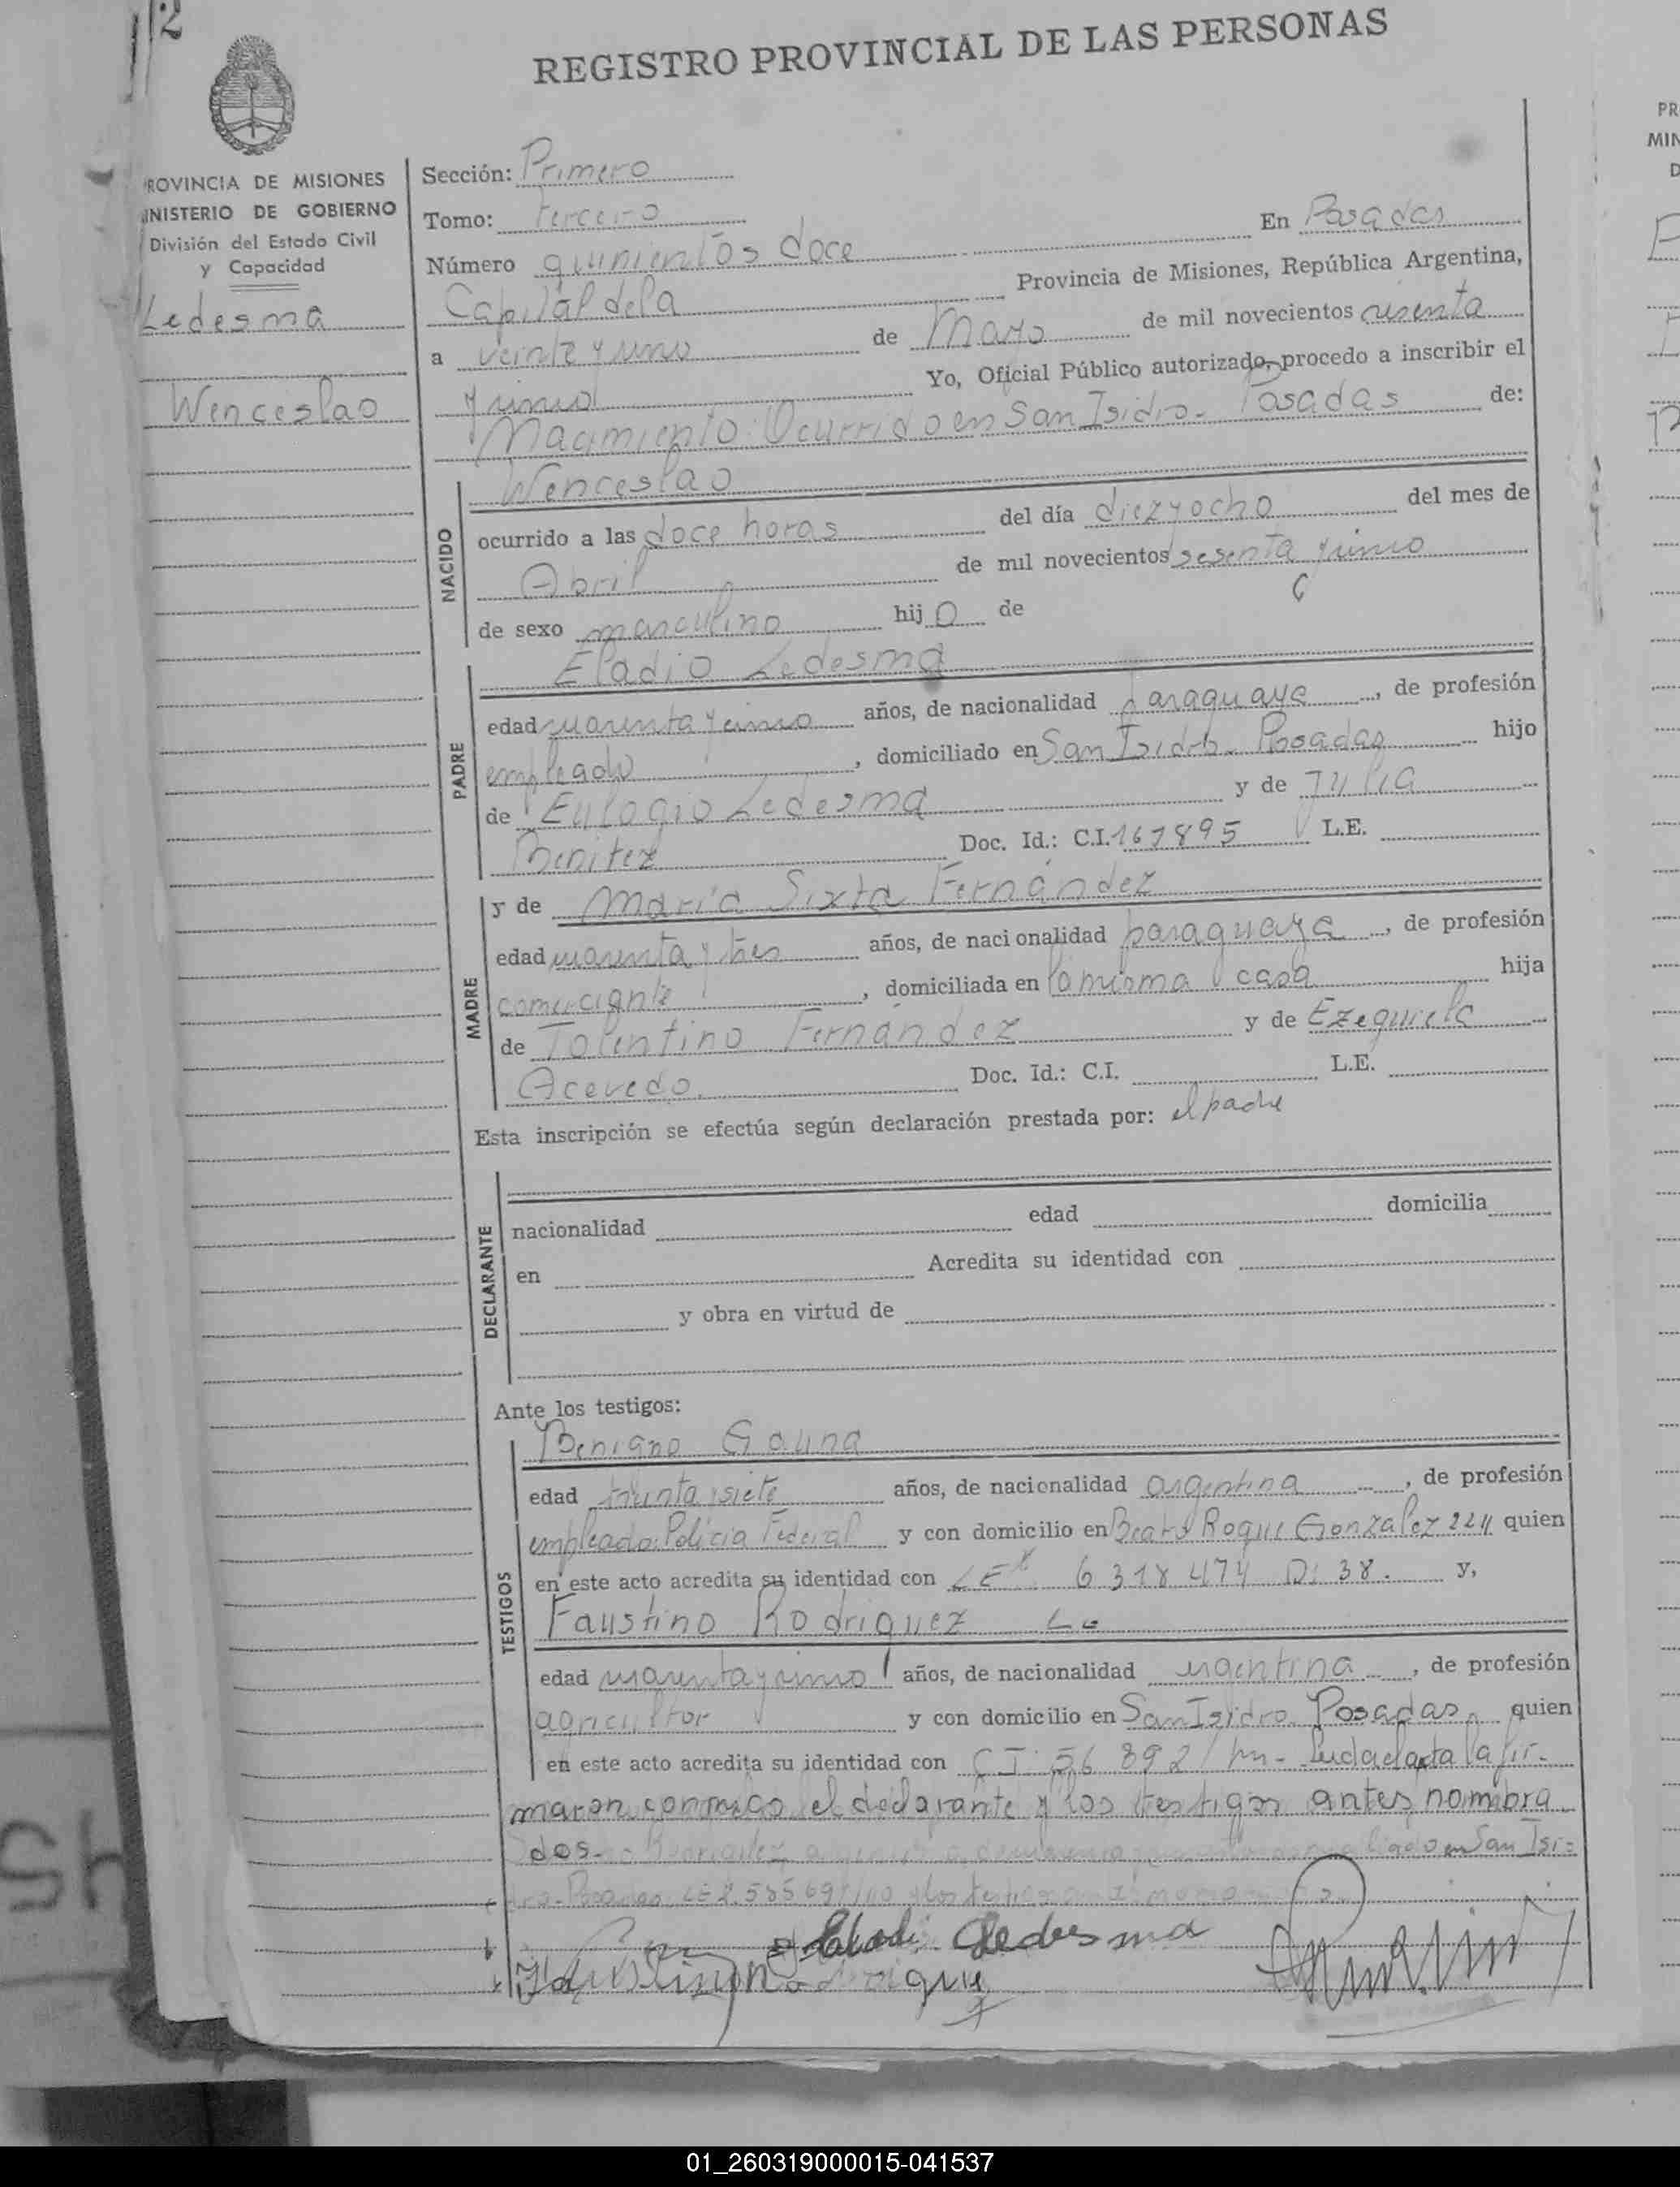 REGISTRO PROVINCIAL DE LAS PERSONAS
PROVINCIA DE MISIONES
MINISTERIO DE GOBIERNO
División del Estado Civil
y Capacidad
Ledesma
Wenceslao
Sección: Primero
Tomo: Tercero
Número quinientos doce En Posadas
Capital de la Provincia de Misiones, República Argentina,
a veinte y uno de Mayo de mil novecientos sesenta
y cinco Yo, Oficial Público autorizado, procedo a inscribir el
Nacimiento: Ocurrido en San Isidro - Posadas de:
NACIDO
Wenceslao
ocurrido a las doce horas del día diez y ocho del mes de
Abril de mil novecientos sesenta y cinco
de sexo masculino hijo de
PADRE
Eladio Ledesma
edad cuarenta y cinco años, de nacionalidad paraguaya, de profesión
empleado, domiciliado en San Isidro - Posadas hijo
de Eulogio Ledesma y de Julia
Benitez Doc. Id.: C.I. 167895 L.E.
MADRE
y de María Sixta Fernández
edad cuarenta y tres años, de nacionalidad paraguaya, de profesión
comerciante, domiciliada en la misma casa hija
de Tolentino Fernández y de Ezequiela
Acevedo. Doc. Id.: C.I. L.E.
Esta inscripción se efectúa según declaración prestada por: el padre
DECLARANTE
nacionalidad edad domicilia
en Acredita su identidad con
y obra en virtud de
Ante los testigos:
TESTIGOS
Benigno Gauna
edad treinta y siete años, de nacionalidad argentina, de profesión
empleado Policia Federal y con domicilio en Beato Roque Gonzalez 2211 quien
en este acto acredita su identidad con L E 6 318 474 D. 38. y,
Faustino Rodriguez
edad cuarenta y cinco años, de nacionalidad argentina, de profesión
agricultor y con domicilio en San Isidro Posadas quien
en este acto acredita su identidad con C I 56 892 Leida el acta la fir-
maron conmigo el declarante y los testigos antes nombra
dos. en San Isi-
Eladio Ledesma
01_260319000015-041537